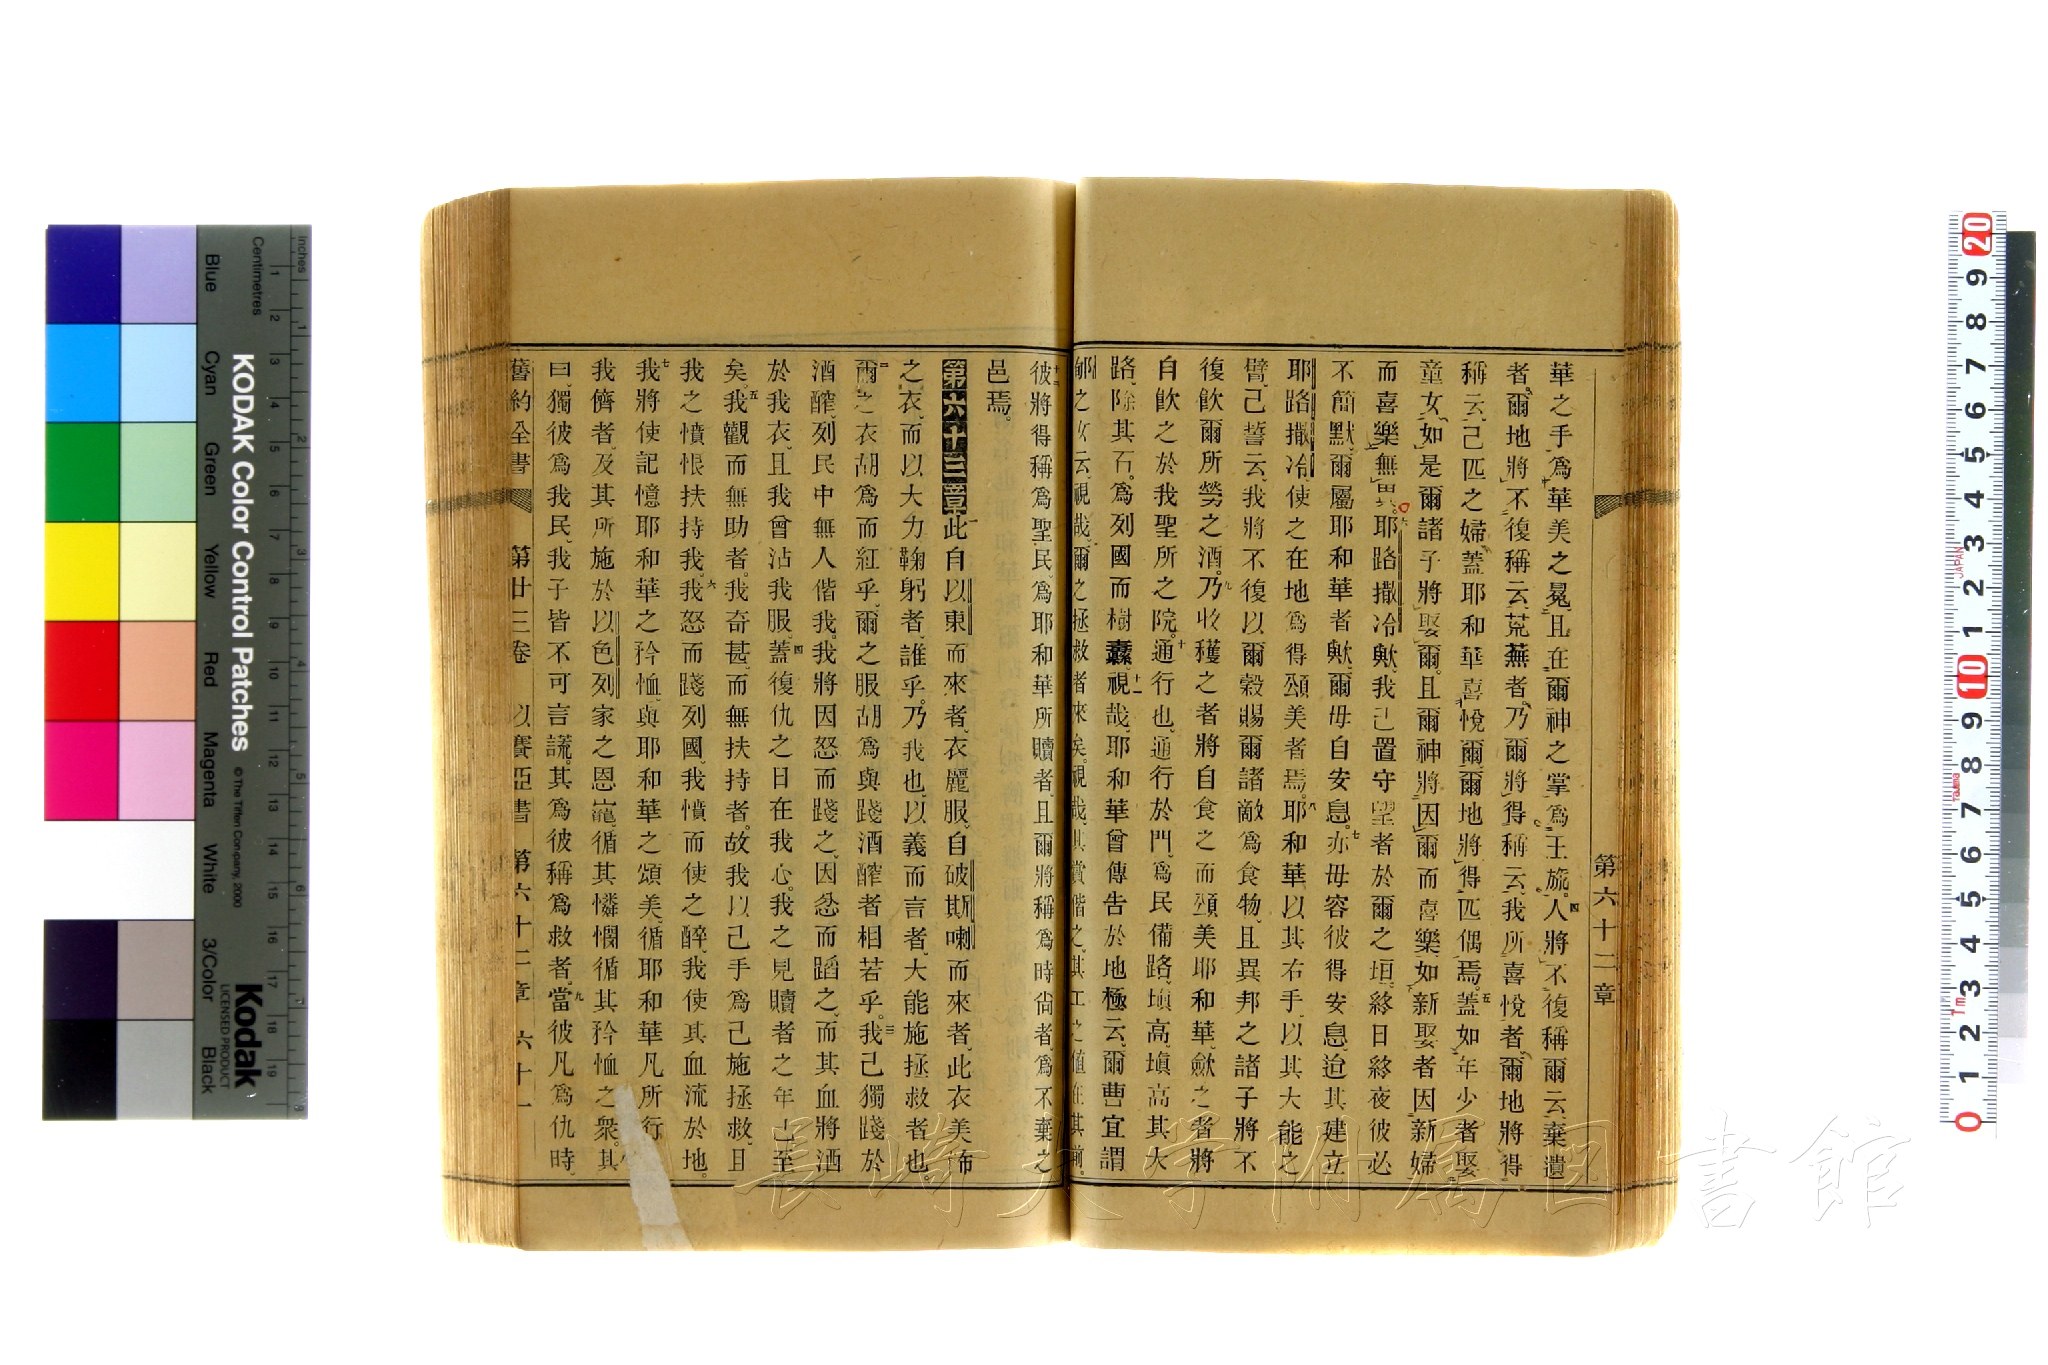 第六十二章
華之手、爲華美之冕、且在爾神之掌爲王旒。四人將不復稱爾云、棄遺
者、爾地將不復稱云、荒蕪者、乃爾將得稱云、我所喜悅者、爾地將得
稱云、己匹之婦、蓋耶和華喜悅爾、爾地將得匹偶焉。五蓋如年少者娶
童女、如是爾諸子將娶爾、且爾神將因爾而喜樂、如新娶者因新婦
而喜樂無異。六耶路撒冷歟、我己置守望者於爾之垣、終日終夜彼必
不簡默、爾屬耶和華者歟、爾毋自安息。七亦毋容彼得安息、迨其建立
耶路撒冷、使之在地爲得頌美者焉。八耶和華以其右手、以其大能之
臂、己誓云、我將不復以爾穀賜爾諸敵爲食物、且異邦之諸子將不
復飮爾所勞之酒。九乃收穫之者將自食之而頌美耶和華、歛之者將
自飮之於我聖所之院。十通行也、通行於門、爲民備路、塡高、塡高其大
路、除其石。爲列國而樹纛。十一視哉、耶和華曾傳告於地極云、爾曹宜謂
郇之女云、視哉、爾之拯救者來矣。視哉、其賞偕之、其工之値在其前。
十二彼將得稱爲聖民、爲耶和華所贖者、且爾將稱爲時尙者、爲不棄之
邑焉。
第六十三章 一此自以東而來者、衣麗服、自破斯喇而來者、此衣美飾
之衣、而以大力鞠躬者、誰乎。乃我也、以義而言者、大能施拯救者也。
二爾之衣胡爲而紅乎、爾之服胡爲與踐酒醡者相若乎。三我己獨踐於
酒醡、列民中無人偕我。我將因怒而踐之、因忿而蹈之、而其血將洒
於我衣、且我曾沾我服。四蓋復仇之日在我心。我之見贖者之年己至
矣。五我觀而無助者。我奇甚、而無扶持者。故我以己手爲己施拯救、且
我之憤恨扶持我。六我怒而踐列國、我憤而使之醉、我使其血流於地。
七我將使記憶耶和華之矜恤、與耶和華之頌美、循耶和華凡所行
我儕者、及其所施於以色列家之恩寵、循其憐憫循其矜恤之衆。八其
曰、獨彼爲我民、我子皆不可言謊。其爲彼稱爲救者。九當彼凡爲仇時、
舊約全書 第廿三卷 以賽亞書 第六十二章 六十一
KODAK Color Control Patches
© The Tiffen Company, 2000
Kodak
LICENSED PRODUCT
Inches
Centimetres
Blue
Cyan
Green
Yellow
Red
Magenta
White
3/Color
Black
長崎大学附属図書館
JAPAN